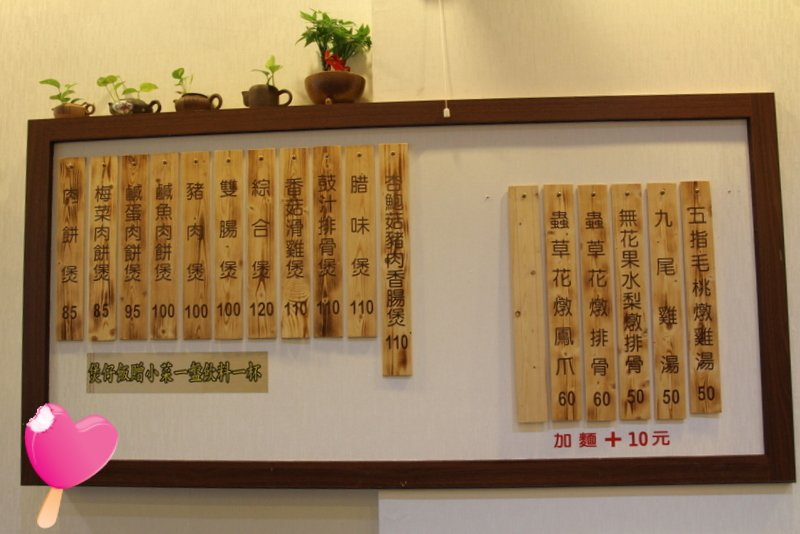 肉餅煲 85
梅菜肉餅煲 85
鹹蛋肉餅煲 95
鹹魚肉餅煲 100
豬肉煲 100
雙腸煲 100
綜合煲 120
香菇滑雞煲 110
鼓汁排骨煲 110
腊味煲 110
杏鮑菇豬肉香腸煲 110
煲仔飯贈小菜一盤飲料一杯
蟲草花燉鳳爪 60
蟲草花燉排骨 60
無花果水梨燉排骨 50
九尾雞湯 50
五指毛桃燉雞湯 50
加麵+10元